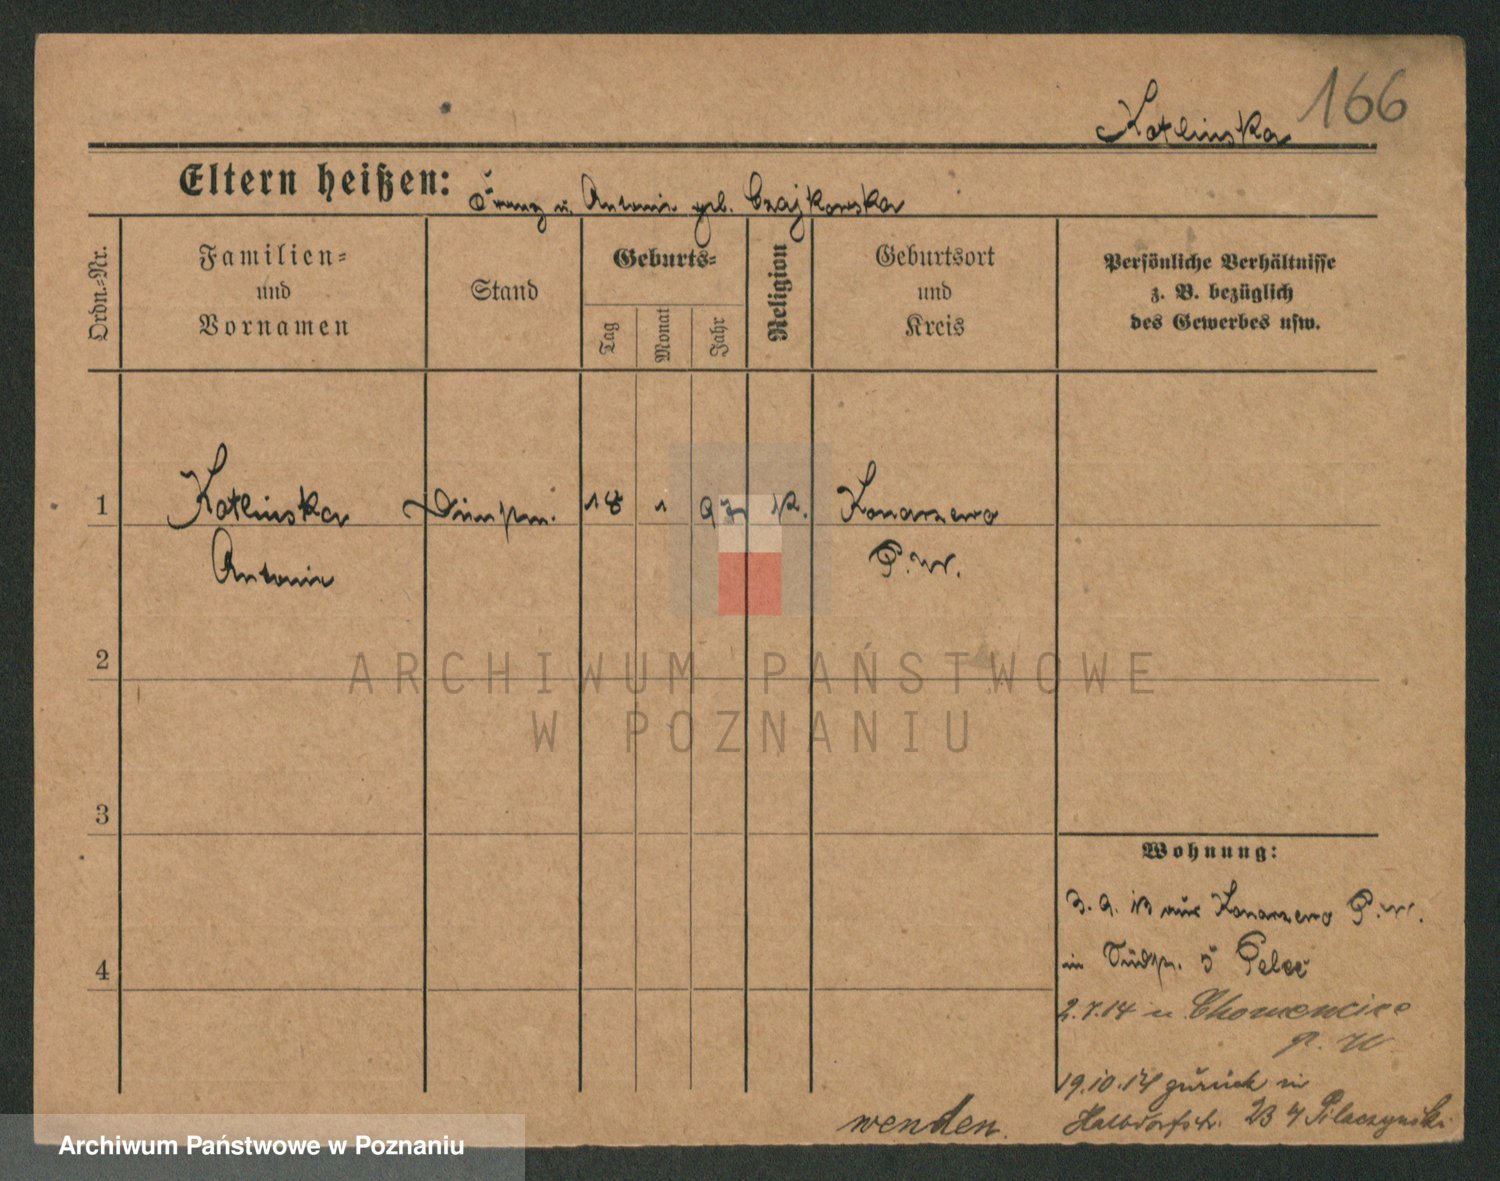 166
Kotlinska
Eltern heißen: Franz u. Antonie geb. Czajkowska
Ordn.-Nr.
Familien-
und
Vornamen
Stand
Geburts-
Tag
Monat
Jahr
Religion
Geburtsort
und
Kreis
Persönliche Verhältnisse
z. B. bezüglich
des Gewerbes usw.
1 Kotlinska 18 1 97 k. Konarzewo
Antonie P.W.
2
ARCHIWUM PAŃSTWOWE
W POZNANIU
3
Wohnung:
3.9.13 aus Konarzewo P.W.
4
in 5
2.7.14 n. Chomencice
P.W.
19.10.14 zurück in
Halbdorfstr. 23 4 Pilaczynski
wenden.
Archiwum Państwowe w Poznaniu